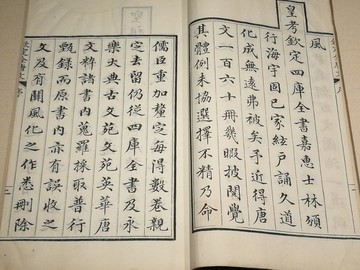 風
皇考欽定四庫全書嘉惠士林頒
行海宇固已家絃戶誦久道
化成無遠弗被矣予近得唐
文一百六十冊幾暇披閱覺
其體例未協選擇不精乃命
儒臣重加釐定每得數卷親
定去留仍從四庫全書及永
樂大典古文苑文苑英華唐
文粹諸書內蒐羅採取普行
甄錄而原書內亦有誤收之
文及有關風化之作悉刪除